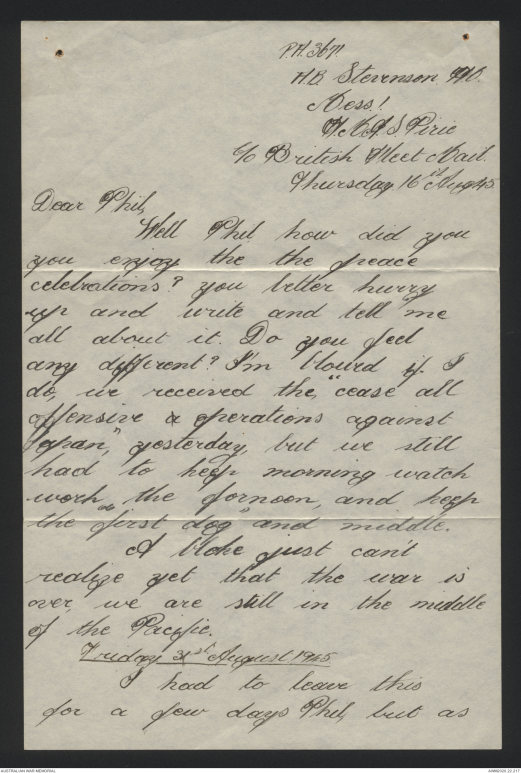 P.A. 3671.
H.B. Stevenson
Mess!
H.M.A.S. Pirie
C/o British Fleet Mail.
Thursday 16th Aug 45.
Dear Phil,
Well Phil how did you
you enjoy the the peace
celebrations? you better hurry
up and write and tell me
all about it. Do you feel
any different? I'm blowed if I
do, we received the, "cease all
offensive operations against
Japan", yesterday, but we still
had to keep morning watch
work the fornoon, and keep
the "first dog" and middle.
A bloke just can't
realize yet that the war is
over, we are still in the middle
of the Pacific.
Friday 31st August 1945.
I had to leave this
for a few days Phil, but as
AUSTRALIAN WAR MEMORIAL